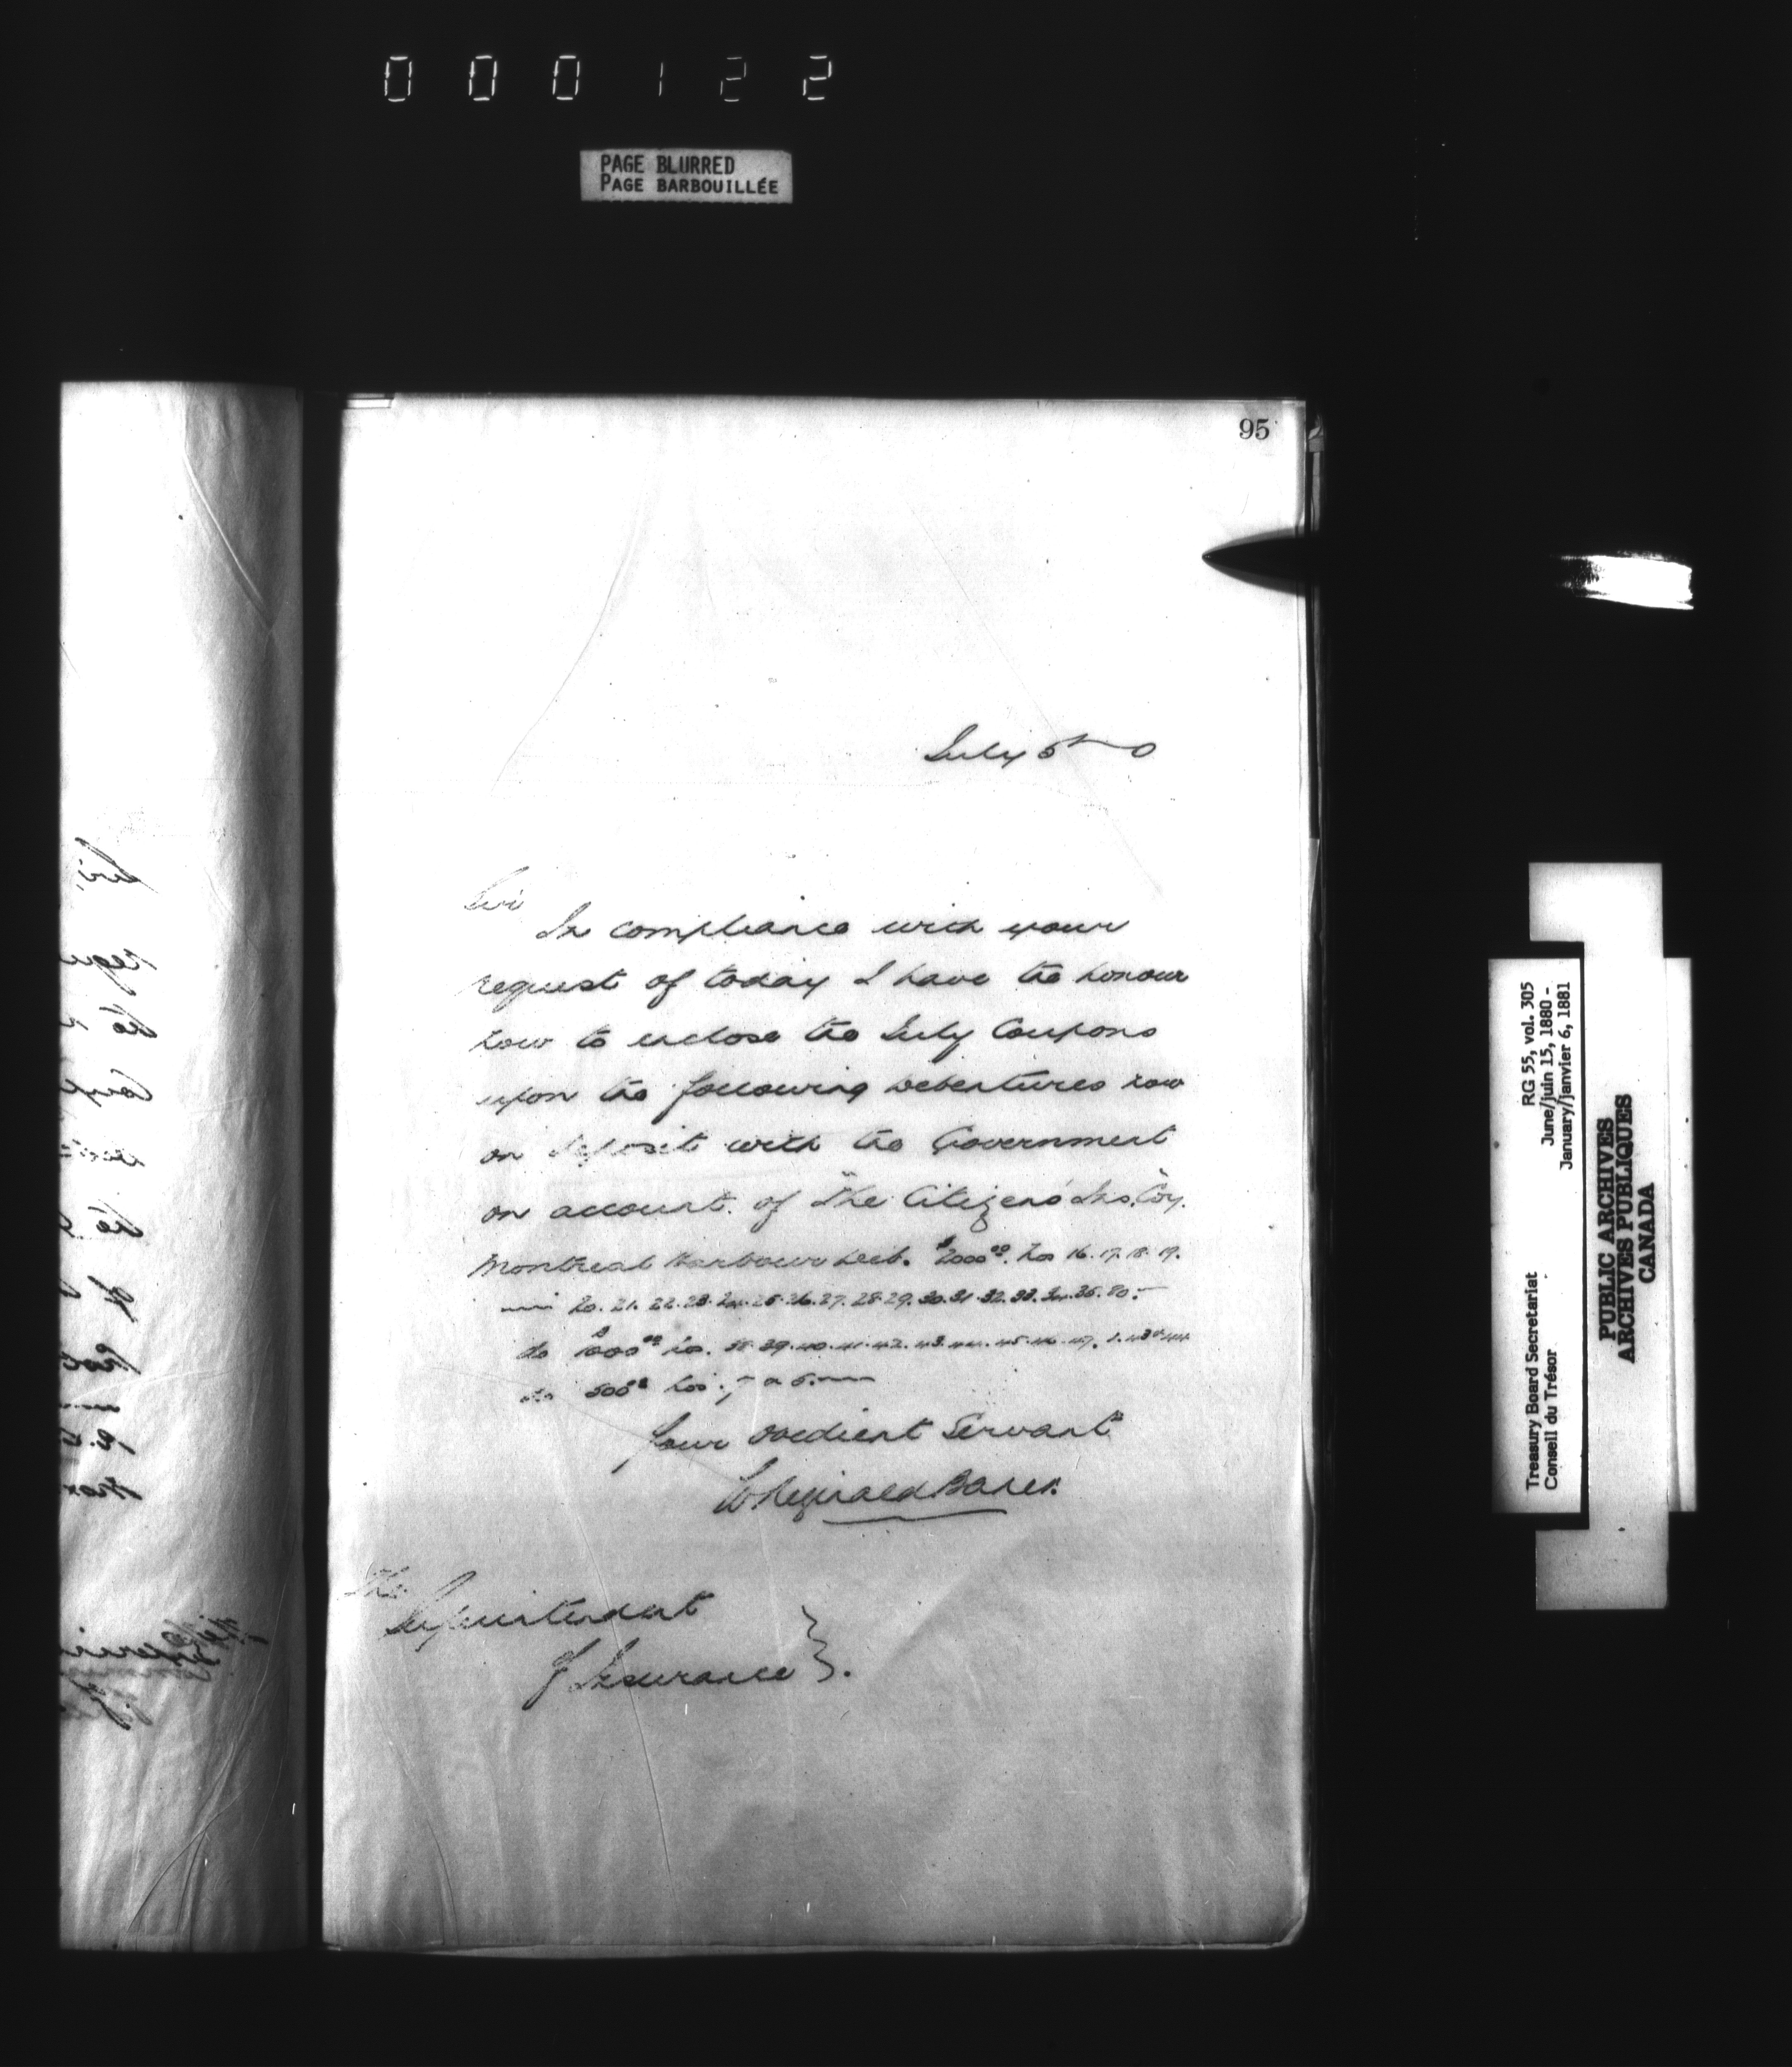 000122
PAGE BLURRED
PAGE BARBOUILLÉE
95
July 5th 0
Sir
In compliance with your
request of today I have the honour
now to enclose the July Coupons
upon the following Debentures now
on deposit with the Government
on account of "The Citizens' Ins. Coy."
Montreal Harbour Deb. $2000.00 No 16. 17. 18. 19.
20. 21. 22. 23. 24. 25. 26. 27. 28. 29. 30. 31. 32. 33. 34. 35. 80.
do $1000.00 No. 38. 39. 40. 41. 42. 43. 44. 45. 46. 47.
do 500
Your obedient Servant
W Reginald Baker
The
Superintendent
of Insurance
RG 55, vol. 305
June/juin 15, 1880 -
January/janvier 6, 1881
Treasury Board Secretariat
Conseil du Trésor
PUBLIC ARCHIVES
ARCHIVES PUBLIQUES
CANADA